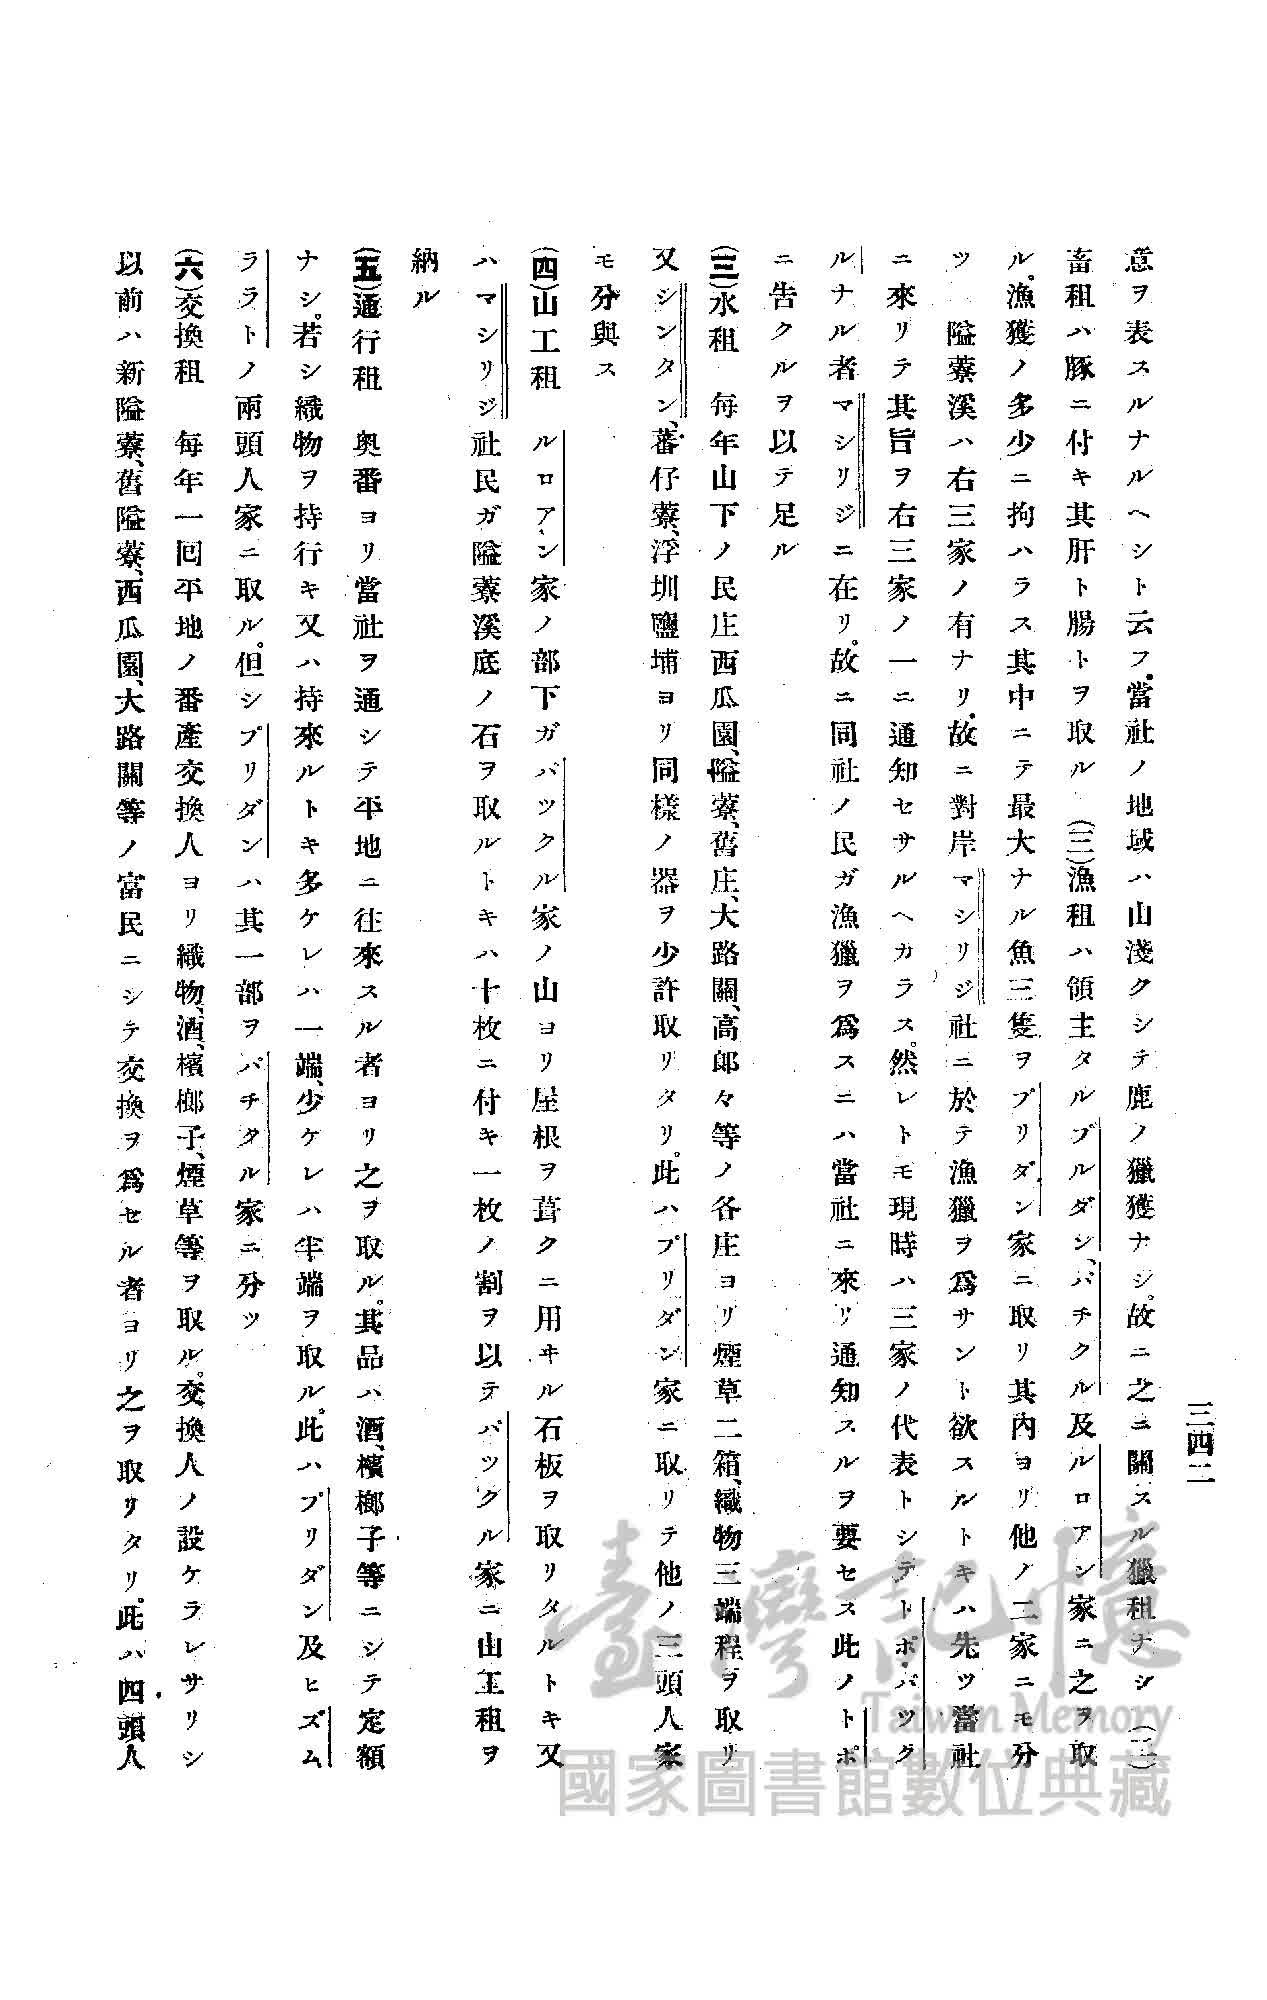 三四二
意ヲ表スルナルヘシト云フ。當社ノ地域ハ山淺クシテ鹿ノ獵獲ナシ。故ニ之ニ關スル獵租ナシ (二)
畜租ハ豚ニ付キ其肝ト腸トヲ取ル (三)漁租ハ領主タルブルダン、パチクル及ルロアン家ニ之ヲ取
ル。漁獲ノ多少ニ拘ハラス其中ニテ最大ナル魚三隻ヲプリダン家ニ取リ其內ヨリ他ノ二家ニモ分
ツ 隘藔溪ハ右三家ノ有ナリ。故ニ對岸マシリジ社ニ於テ漁獵ヲ爲サント欲スルトキハ先ツ當社
ニ來リテ其旨ヲ右三家ノ一ニ通知セサルヘカラス。然レトモ現時ハ三家ノ代表トシテトポ・パツク
ルナル者マシリジニ在リ。故ニ同社ノ民ガ漁獵ヲ爲スニハ當社ニ來リ通知スルヲ要セス此ノトポ
ニ告クルヲ以テ足ル
(三)水租 每年山下ノ民庄西瓜園、隘藔、舊庄、大路關、高郞々等ノ各庄ヨリ煙草二箱、織物三端程ヲ取リ
又シンタン、蕃仔藔、浮圳鹽埔ヨリ同樣ノ器ヲ少許取リタリ。此ハプリダン家ニ取リテ他ノ三頭人家
モ分與ス
(四)山工租 ルロアン家ノ部下ガパツクル家ノ山ヨリ屋根ヲ葺クニ用ヰル石板ヲ取リタルトキ又
ハマシリジ社民ガ隘藔溪底ノ石ヲ取ルトキハ十枚ニ付キ一枚ノ割ヲ以テパツクル家ニ山工租ヲ
納ル
(五)通行租 奧番ヨリ當社ヲ通シテ平地ニ往來スル者ヨリ之ヲ取ル。其品ハ酒、檳榔子等ニシテ定額
ナシ。若シ織物ヲ持行キ又ハ持來ルトキ多ケレハ一端、少ケレハ半端ヲ取ル。此ハプリダン及ヒズム
ララトノ兩頭人家ニ取ル。但シプリダンハ其一部ヲパチクル家ニ分ツ
(六)交換租 每年一回平地ノ番產交換人ヨリ織物、酒、檳榔子、煙草等ヲ取ル。交換人ノ設ケラレサリシ
以前ハ新隘藔、舊隘藔、西瓜園、大路關等ノ富民ニシテ交換ヲ爲セル者ヨリ之ヲ取リタリ。此ハ四頭人
臺灣記憶
Taiwan Memory
國家圖書館數位典藏